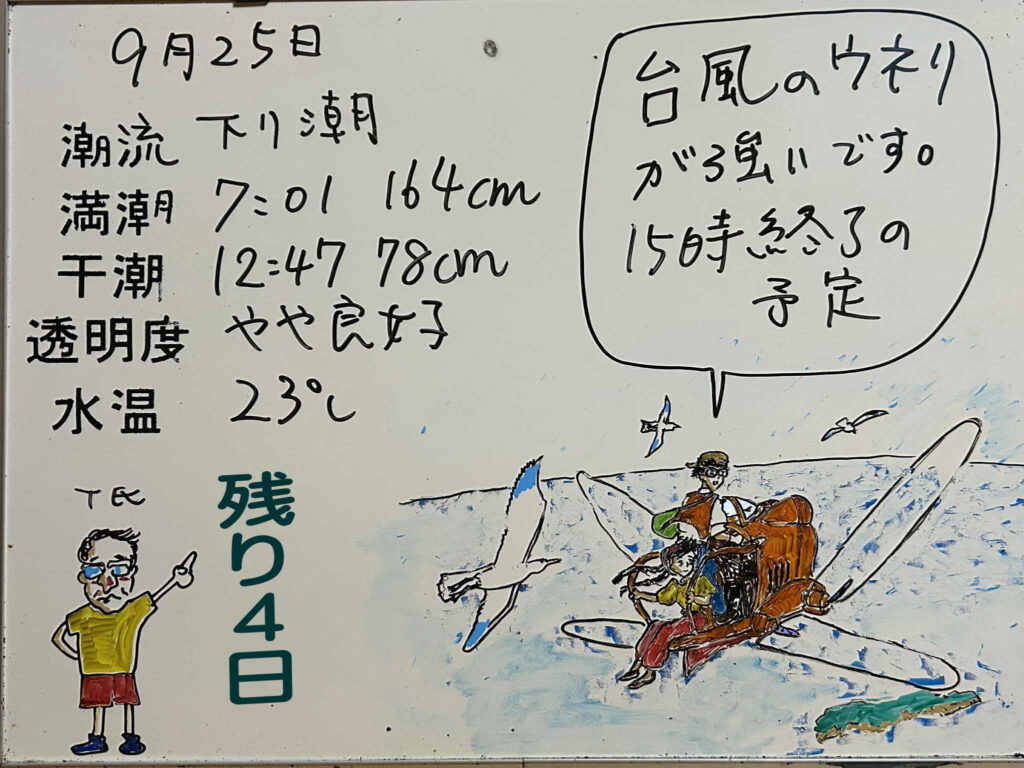 9月25日
潮流 下り潮
満潮 7:01 164cm
干潮 12:47 78cm
透明度 やや良好
水温 23℃
台風のウネリ
が強いです。
15時終了の
予定
TEC
残り4日